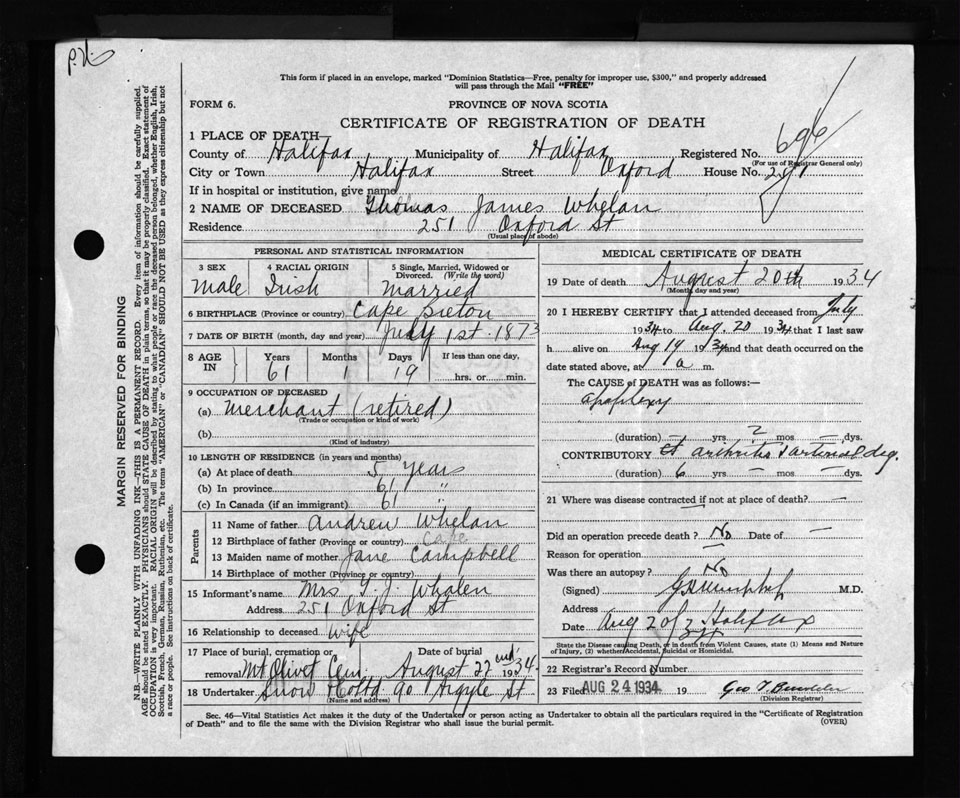 This form if placed in an envelope, marked "Dominion Statistics—Free, penalty for improper use, $300," and properly addressed
will pass through the Mail "FREE"
FORM 6.
PROVINCE OF NOVA SCOTIA
CERTIFICATE OF REGISTRATION OF DEATH
1 PLACE OF DEATH—
County of Halifax Municipality of Halifax Registered No. 696
(For use of Registrar General only)
City or Town Halifax Street Oxford House No. 251
If in hospital or institution, give name
2 NAME OF DECEASED Thomas James Whelan
Residence 251 Oxford St
(Usual place of abode)
PERSONAL AND STATISTICAL INFORMATION
3 SEX 4 RACIAL ORIGIN 5 Single, Married, Widowed or Divorced. (Write the word)
Male Irish Married
6 BIRTHPLACE (Province or country) Cape Breton
7 DATE OF BIRTH (month, day and year) July 1st 1873
8 AGE IN Years Months Days If less than one day,
61 1 19 hrs. or min.
9 OCCUPATION OF DECEASED
(a) Merchant (retired)
(Trade or occupation or kind of work)
(b)
(Kind of industry)
10 LENGTH OF RESIDENCE (in years and months)
(a) At place of death 5 years
(b) In province 61 "
(c) In Canada (if an immigrant) 61 "
Parents
11 Name of father Andrew Whelan
12 Birthplace of father (Province or country) Cape
13 Maiden name of mother Jane Campbell
14 Birthplace of mother (Province or country)
15 Informant's name Mrs T. J. Whalen
Address 251 Oxford St
16 Relationship to deceased wife
17 Place of burial, cremation or removal Date of burial
Mt Olivet Cem. August 22nd 1934
18 Undertaker Snow & Co Ltd 90 Argyle St
(Name and address)
MEDICAL CERTIFICATE OF DEATH
19 Date of death August 20th 1934
(Month, day and year)
20 I HEREBY CERTIFY that I attended deceased from July
1934 to Aug. 20 1934 that I last saw
h alive on Aug 19 1934 and that death occurred on the
date stated above, at 1 a m.
The CAUSE of DEATH was as follows:—
apoplexy
(duration) — yrs 2 mos — dys.
CONTRIBUTORY arthritis & arterial deg.
(duration) 6 yrs — mos — dys.
21 Where was disease contracted if not at place of death? —
Did an operation precede death? No Date of —
Reason for operation —
Was there an autopsy? No
(Signed) M.D.
Address Halifax
Date Aug 20
State the Disease causing Death, or in death from Violent Causes, state (1) Means and Nature
of Injury, (2) whether Accidental, Suicidal or Homicidal.
22 Registrar's Record Number
23 Filed AUG 24 1934 19
(Division Registrar)
Sec. 46—Vital Statistics Act makes it the duty of the Undertaker or person acting as Undertaker to obtain all the particulars required in the "Certificate of Registration
of Death" and to file the same with the Division Registrar who shall issue the burial permit. (OVER)
MARGIN RESERVED FOR BINDING
N.B.—WRITE PLAINLY WITH UNFADING INK—THIS IS A PERMANENT RECORD. Every item of information should be carefully supplied.
AGE should be stated EXACTLY. PHYSICIANS should STATE CAUSE OF DEATH in plain terms, so that it may be properly classified. Exact statement of
OCCUPATION is very important. RACIAL ORIGIN will be described by stating to what people or race the deceased person belonged, whether English, Irish,
Scottish, French, German, Russian, Ruthenian, etc. The terms "AMERICAN" or "CANADIAN" SHOULD NOT BE USED as they express citizenship but not
a race or people. See instructions on back of certificate.